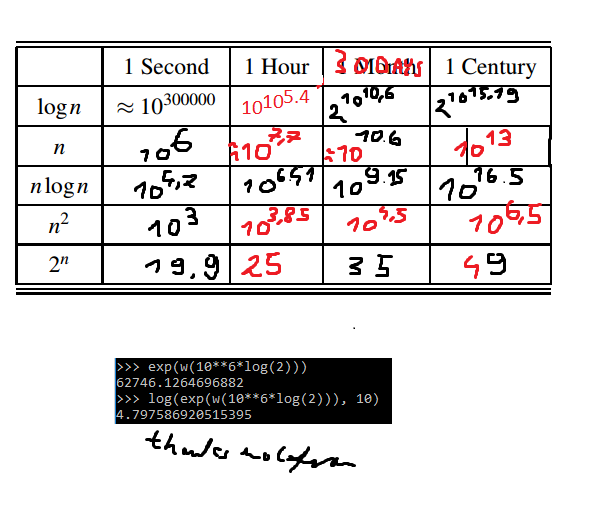 1 Second 1 Hour 30 DAYS 1 Century
log n ≈ 10^300000 10^10^5.4 2^10^10,6 2^10^15.19
n 10^6 ≈10^7,7 ≈10^10.6 10^13
n log n 10^4,7 10^9.15 10^16.5
n² 10^3 10^3,85 10^4,5 10^6,5
2ⁿ 19,9 25 35 49
>>> exp(w(10**6*log(2)))
62746.1264696882
>>> log(exp(w(10**6*log(2))), 10)
4.797586920515395
thanks wolfram